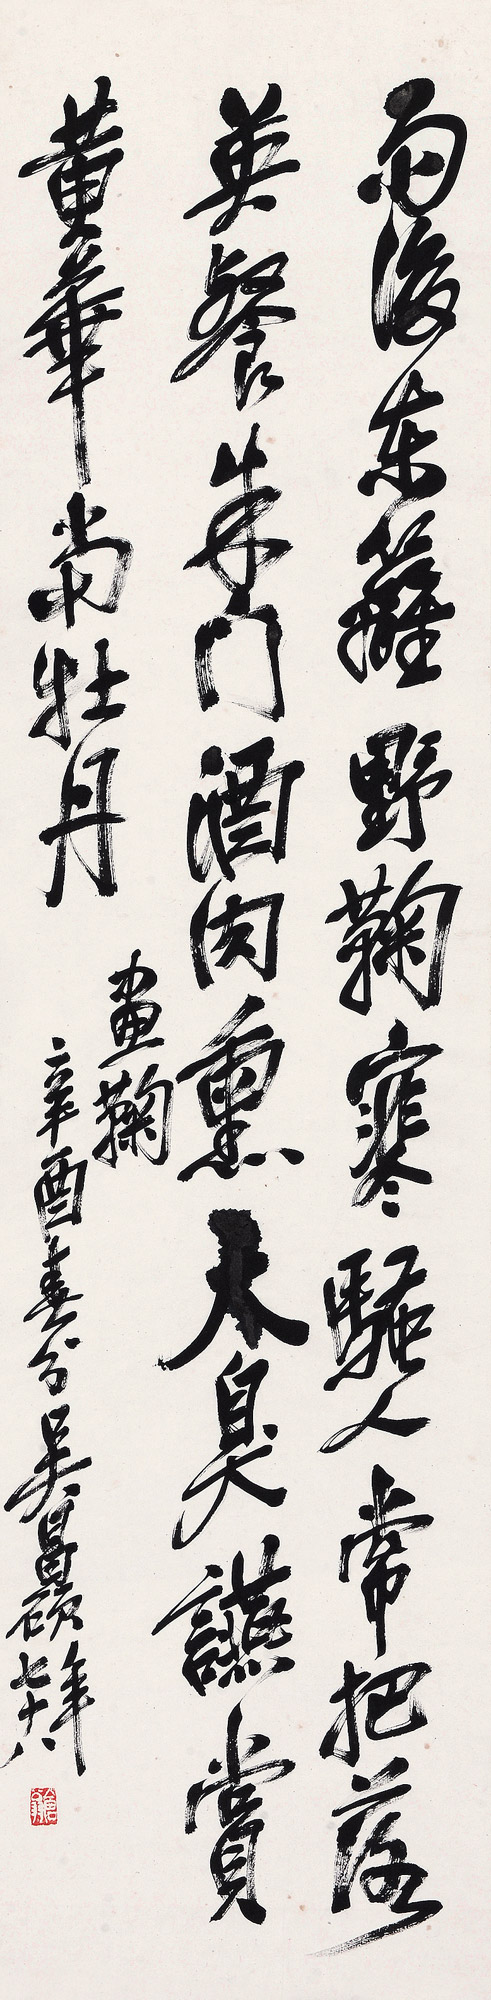 雨後東籬野鞠寒騷人常把落
英餐朱門酒肉熏天臭讌賞
黄華當牡丹
畫鞠
辛酉春分吳昌碩年七十八